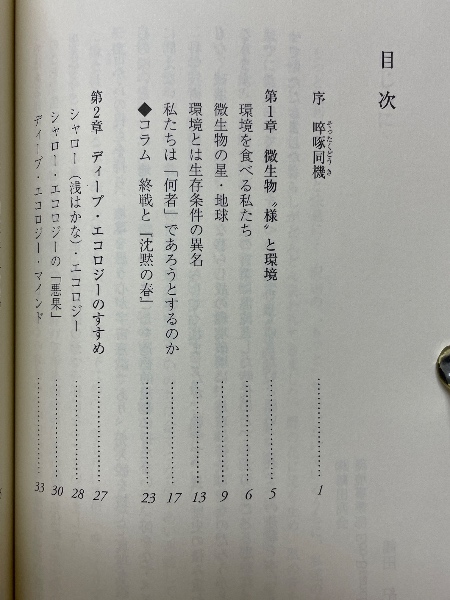 目次
序 啐啄同機 1
そったくどうき
第1章 微生物〝様〟と環境 5
環境を食べる私たち 6
微生物の星・地球 9
環境とは生存条件の異名 13
私たちは「何者」であろうとするのか 17
◆コラム 終戦と『沈黙の春』 23
第2章 ディープ・エコロジーのすすめ 27
シャロー（浅はかな）・エコロジー 28
シャロー・エコロジーの「悪果」 30
ディープ・エコロジー・マインド 33